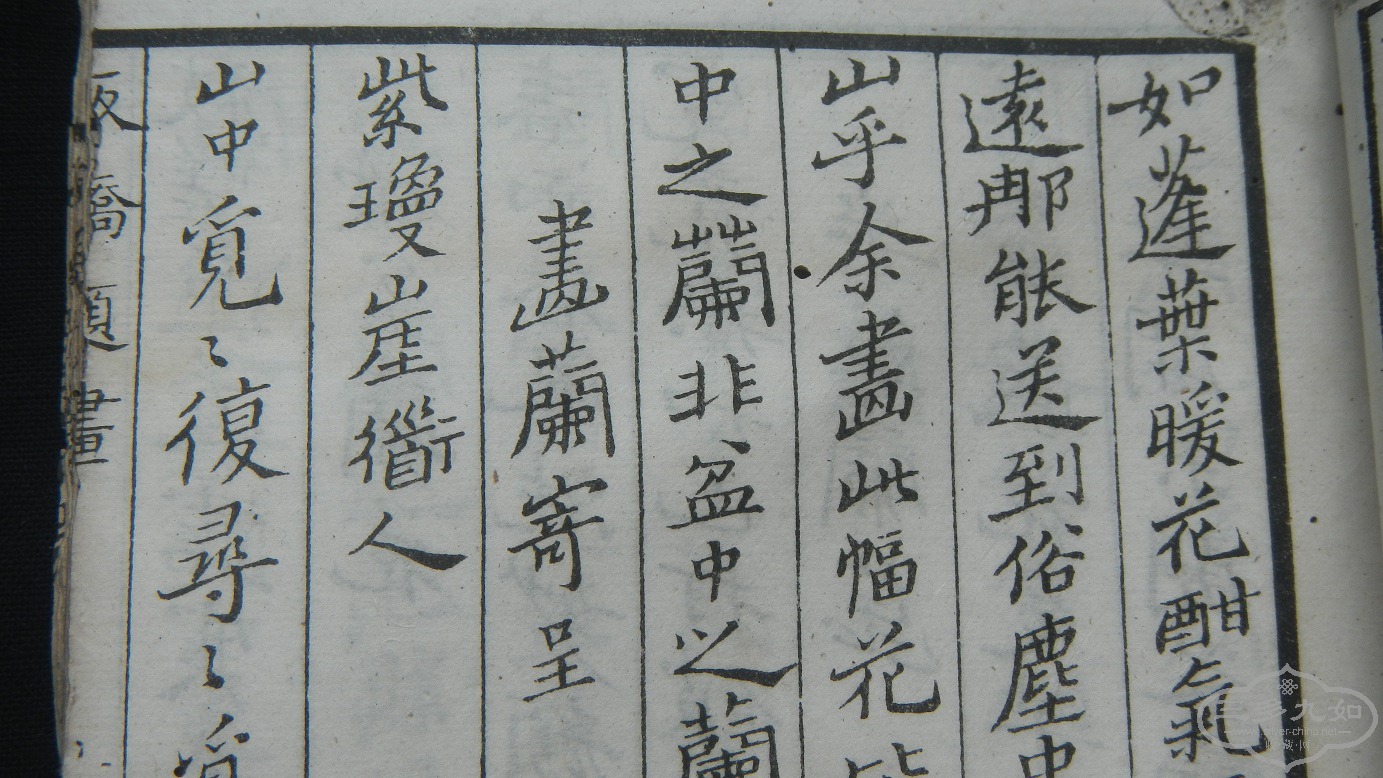 如蓬葉暖花酣氣
遠那能送到俗塵中
山乎余畫此幅花皆
中之蘭非盆中之蘭
畫蘭寄呈
紫瓊崖道人
山中覓〻復尋〻覓
板橋題畫